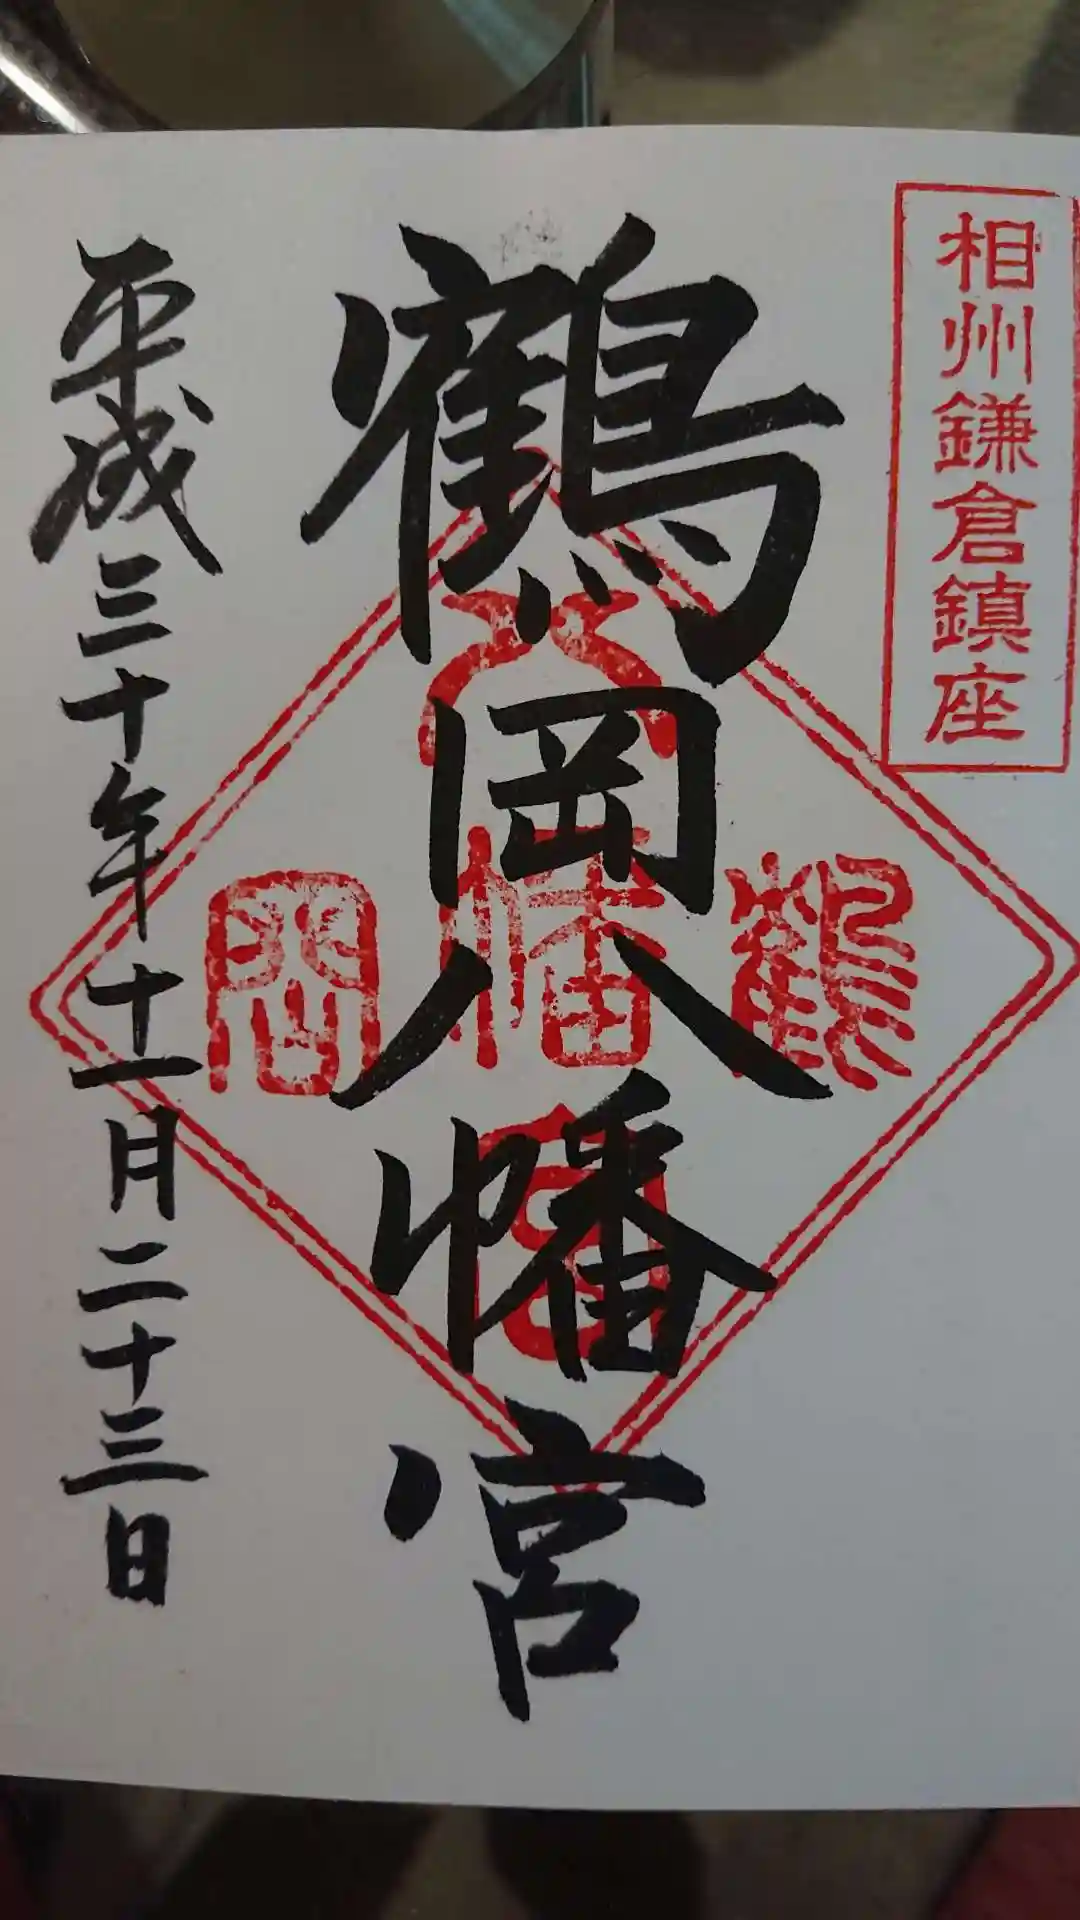 相州鎌倉鎮座
鶴岡八幡宮
平成三十年十一月二十三日
鶴
八幡宮
岡